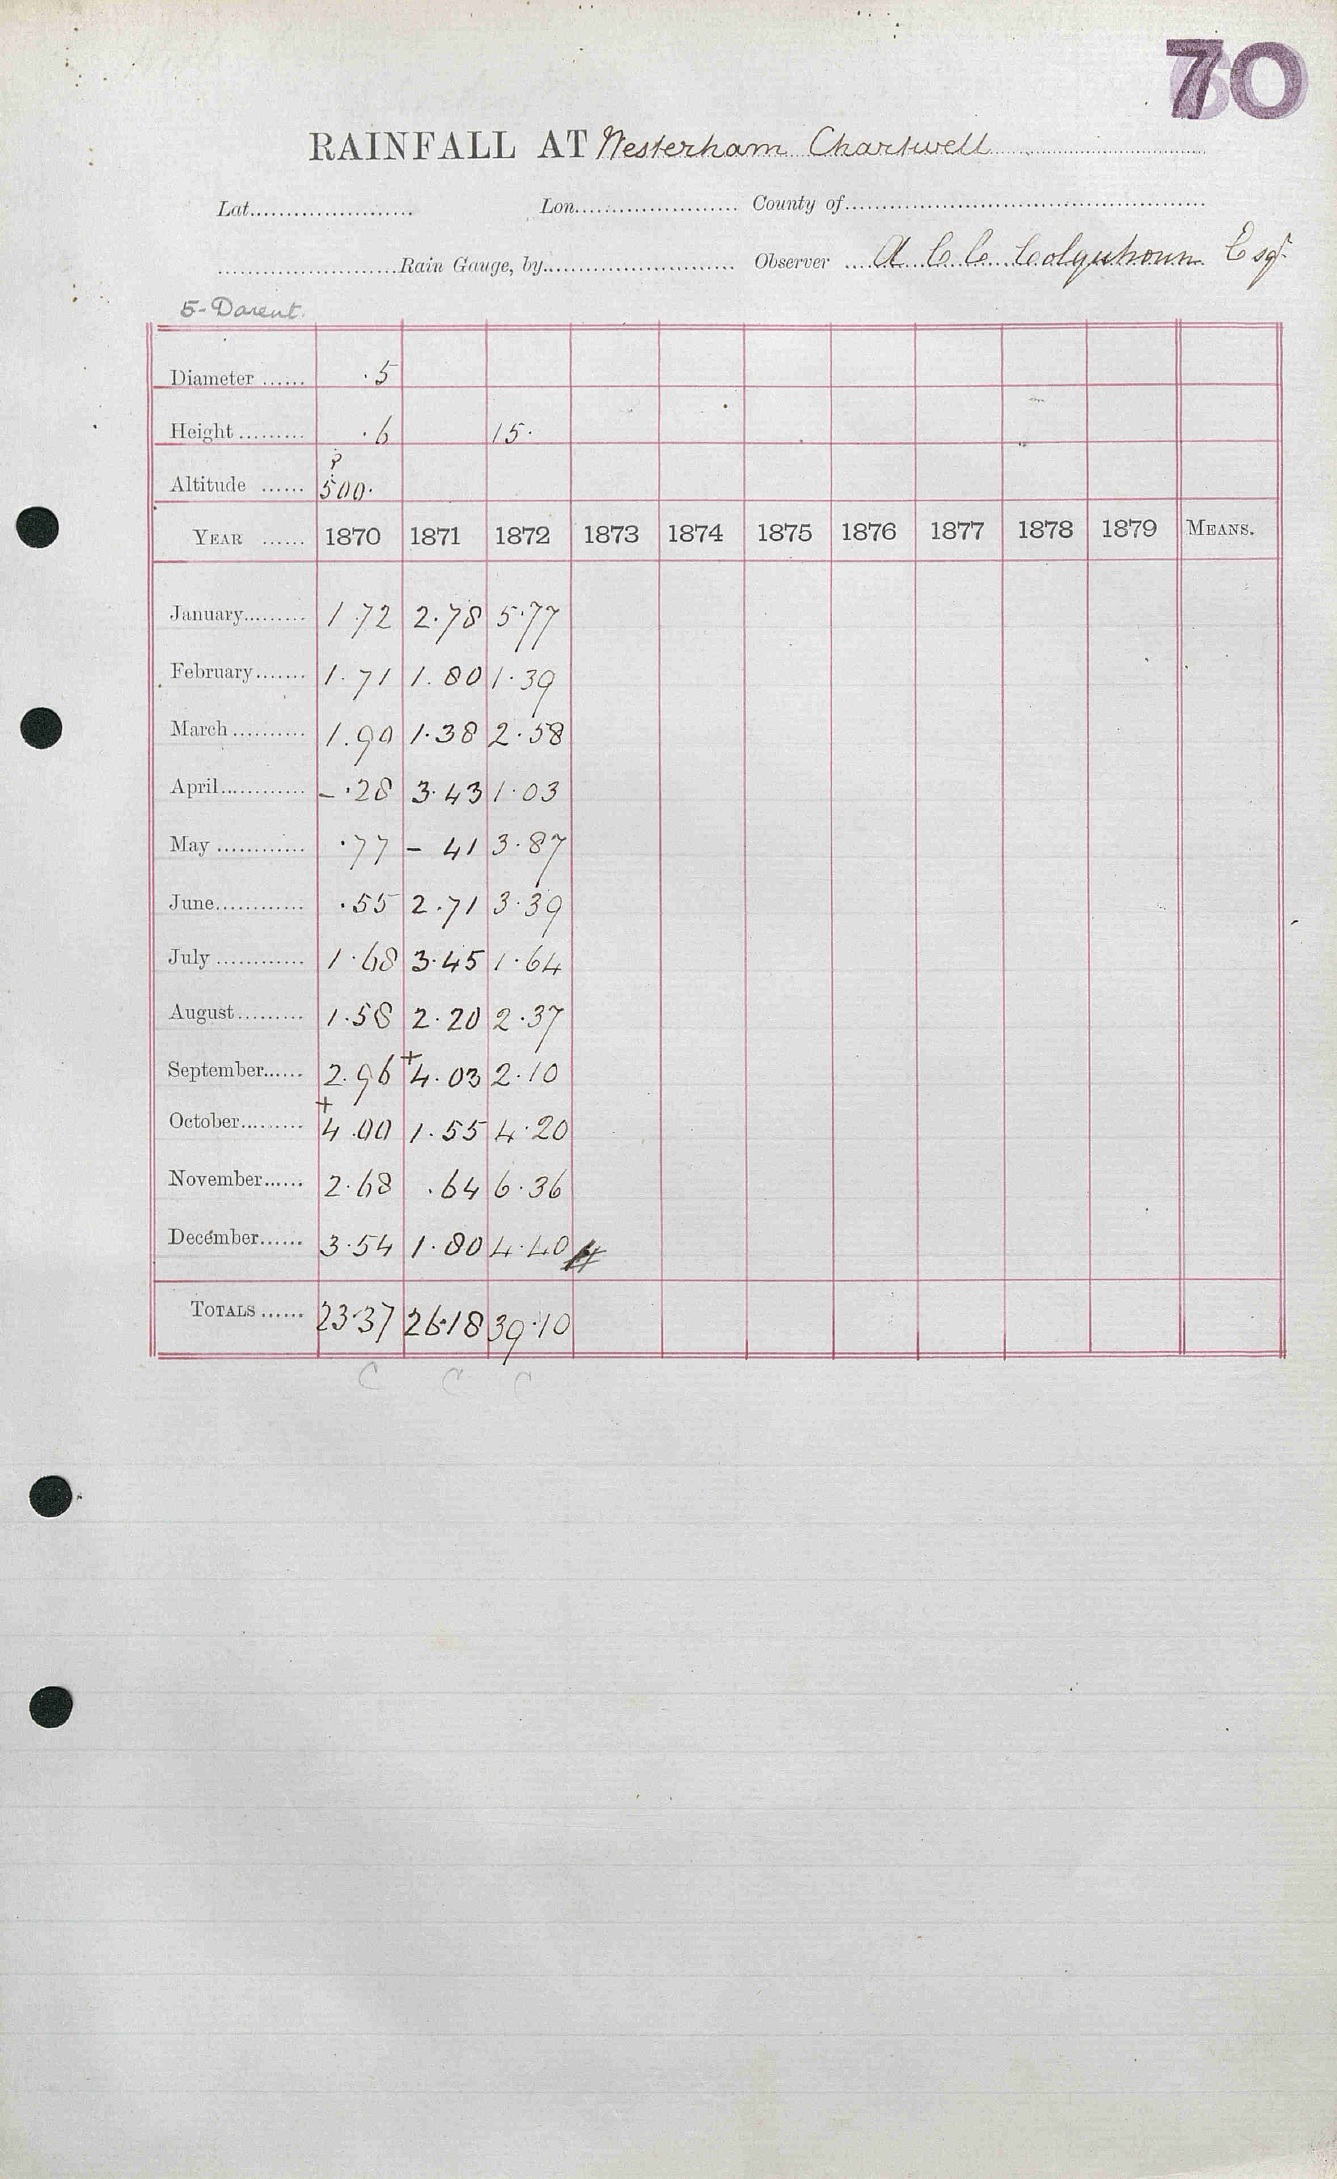 70
RAINFALL AT Westerham Chartwell
Lat. Lon. County of
Rain Gauge, by Observer A C C Colquhoun Esqr
5-Darent.
Diameter ...... ·5
Height ......... ·6 15·
?
Altitude ...... 500·
YEAR ...... 1870 1871 1872 1873 1874 1875 1876 1877 1878 1879 MEANS.
January......... 1.72 2.78 5.77
February....... 1.71 1.80 1.39
March .......... 1.90 1.38 2.58
April............ - .28 3.43 1.03
May ............ .77 - 41 3.87
June............ .55 2.71 3.39
July ............ 1.68 3.45 1.64
August ......... 1.58 2.20 2.37
September...... 2.96 +4.03 2.10
October......... +4.00 1.55 4.20
November...... 2.68 .64 6.36
December...... 3.54 1.80 4.40
TOTALS ...... 23.37 26.18 39.10
C C C